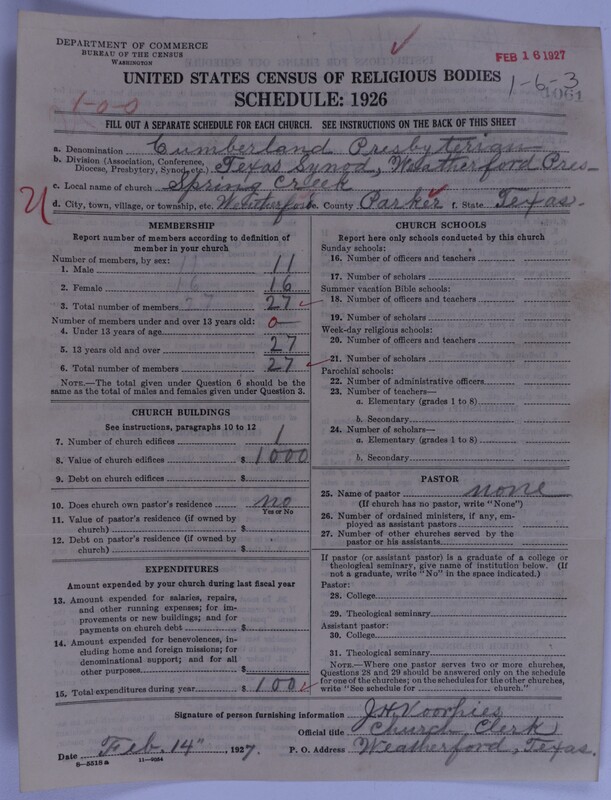 DEPARTMENT OF COMMERCE
BUREAU OF THE CENSUS
WASHINGTON
FEB 16 1927
UNITED STATES CENSUS OF RELIGIOUS BODIES
1-6-3
SCHEDULE: 1926
1-0-0
FILL OUT A SEPARATE SCHEDULE FOR EACH CHURCH. SEE INSTRUCTIONS ON THE BACK OF THIS SHEET
a. Denomination Cumberland Presbyterian
b. Division (Association, Conference, Diocese, Presbytery, Synod, etc.) Texas Synod, Weatherford Pres-
c. Local name of church Spring Creek
d. City, town, village, or township, etc. Weatherford e. County Parker f. State Texas.
MEMBERSHIP
Report number of members according to definition of
member in your church
Number of members, by sex:
1. Male 11
2. Female 16
3. Total number of members 27
Number of members under and over 13 years old:
4. Under 13 years of age 0
5. 13 years old and over 27
6. Total number of members 27
NOTE.—The total given under Question 6 should be the
same as the total of males and females given under Question 3.
CHURCH BUILDINGS
See instructions, paragraphs 10 to 12
7. Number of church edifices 1
8. Value of church edifices $ 1000
9. Debt on church edifices $
10. Does church own pastor's residence no
Yes or No
11. Value of pastor's residence (if owned by
church) $
12. Debt on pastor's residence (if owned by
church) $
EXPENDITURES
Amount expended by your church during last fiscal year
13. Amount expended for salaries, repairs,
and other running expenses; for im-
provements or new buildings; and for
payments on church debt $
14. Amount expended for benevolences, in-
cluding home and foreign missions; for
denominational support; and for all
other purposes $
15. Total expenditures during year $ 100
CHURCH SCHOOLS
Report here only schools conducted by this church
Sunday schools:
16. Number of officers and teachers
17. Number of scholars
Summer vacation Bible schools:
18. Number of officers and teachers
19. Number of scholars
Week-day religious schools:
20. Number of officers and teachers
21. Number of scholars
Parochial schools:
22. Number of administrative officers
23. Number of teachers—
a. Elementary (grades 1 to 8)
b. Secondary
24. Number of scholars—
a. Elementary (grades 1 to 8)
b. Secondary
PASTOR
25. Name of pastor none
(If church has no pastor, write "None")
26. Number of ordained ministers, if any, em-
ployed as assistant pastors
27. Number of other churches served by the
pastor or his assistants
If pastor (or assistant pastor) is a graduate of a college or
theological seminary, give name of institution below. (If
not a graduate, write "No" in the space indicated.)
Pastor:
28. College
29. Theological seminary
Assistant pastor:
30. College
31. Theological seminary
NOTE.—Where one pastor serves two or more churches,
Questions 28 and 29 should be answered only on the schedule
for one of the churches; on the schedules for the other churches,
write "See schedule for church."
Signature of person furnishing information J.H. Voorhies
Official title Church Clerk
Date Feb. 14", 1927. P. O. Address Weatherford, Texas.
8—5518 a 11—9054